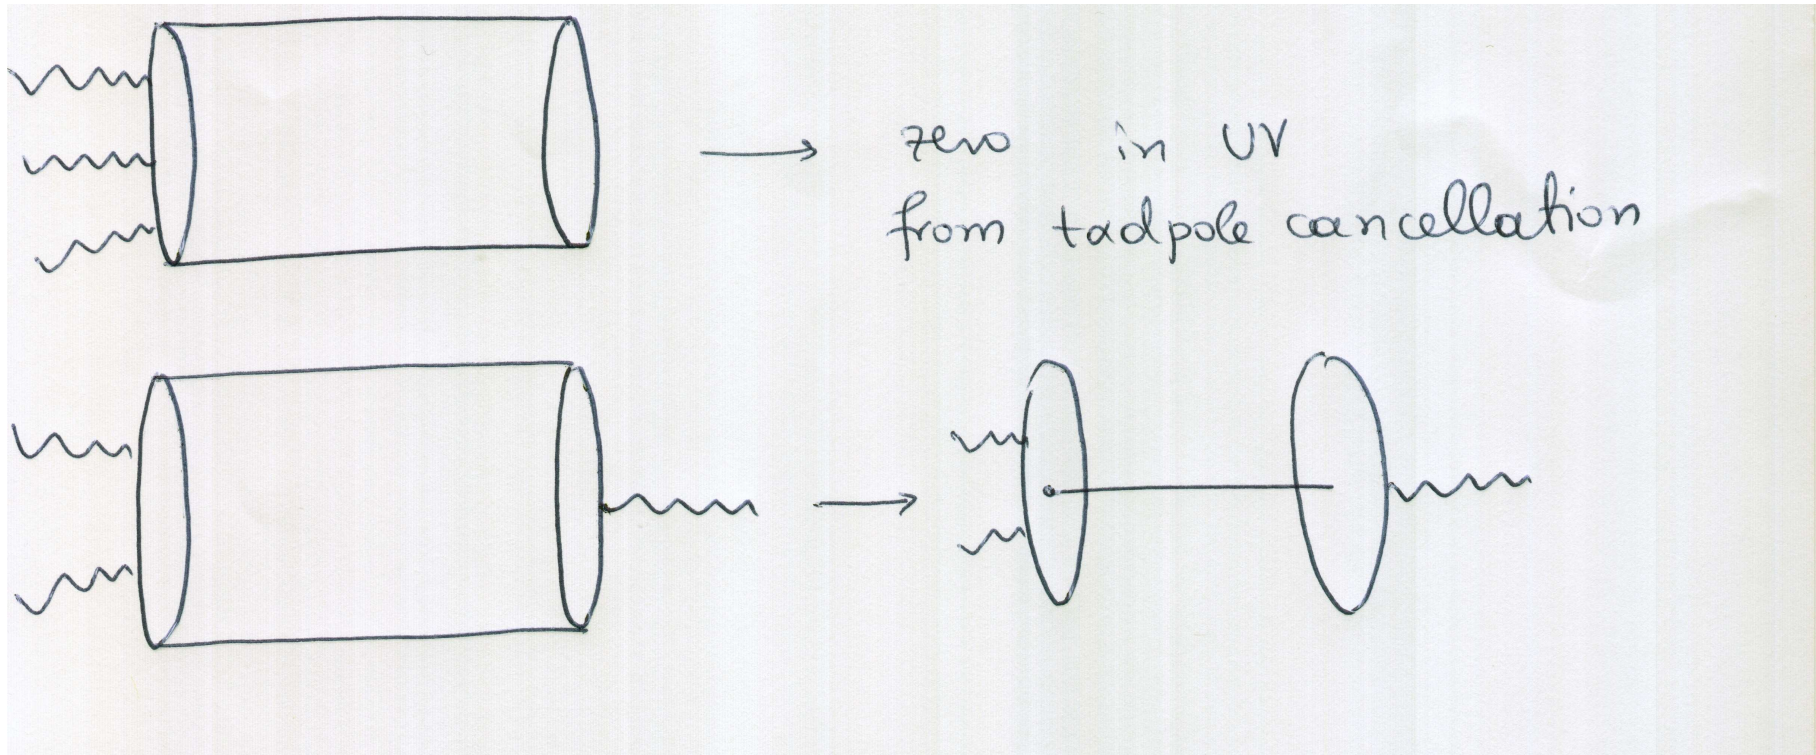 zero in UV
from tadpole cancellation